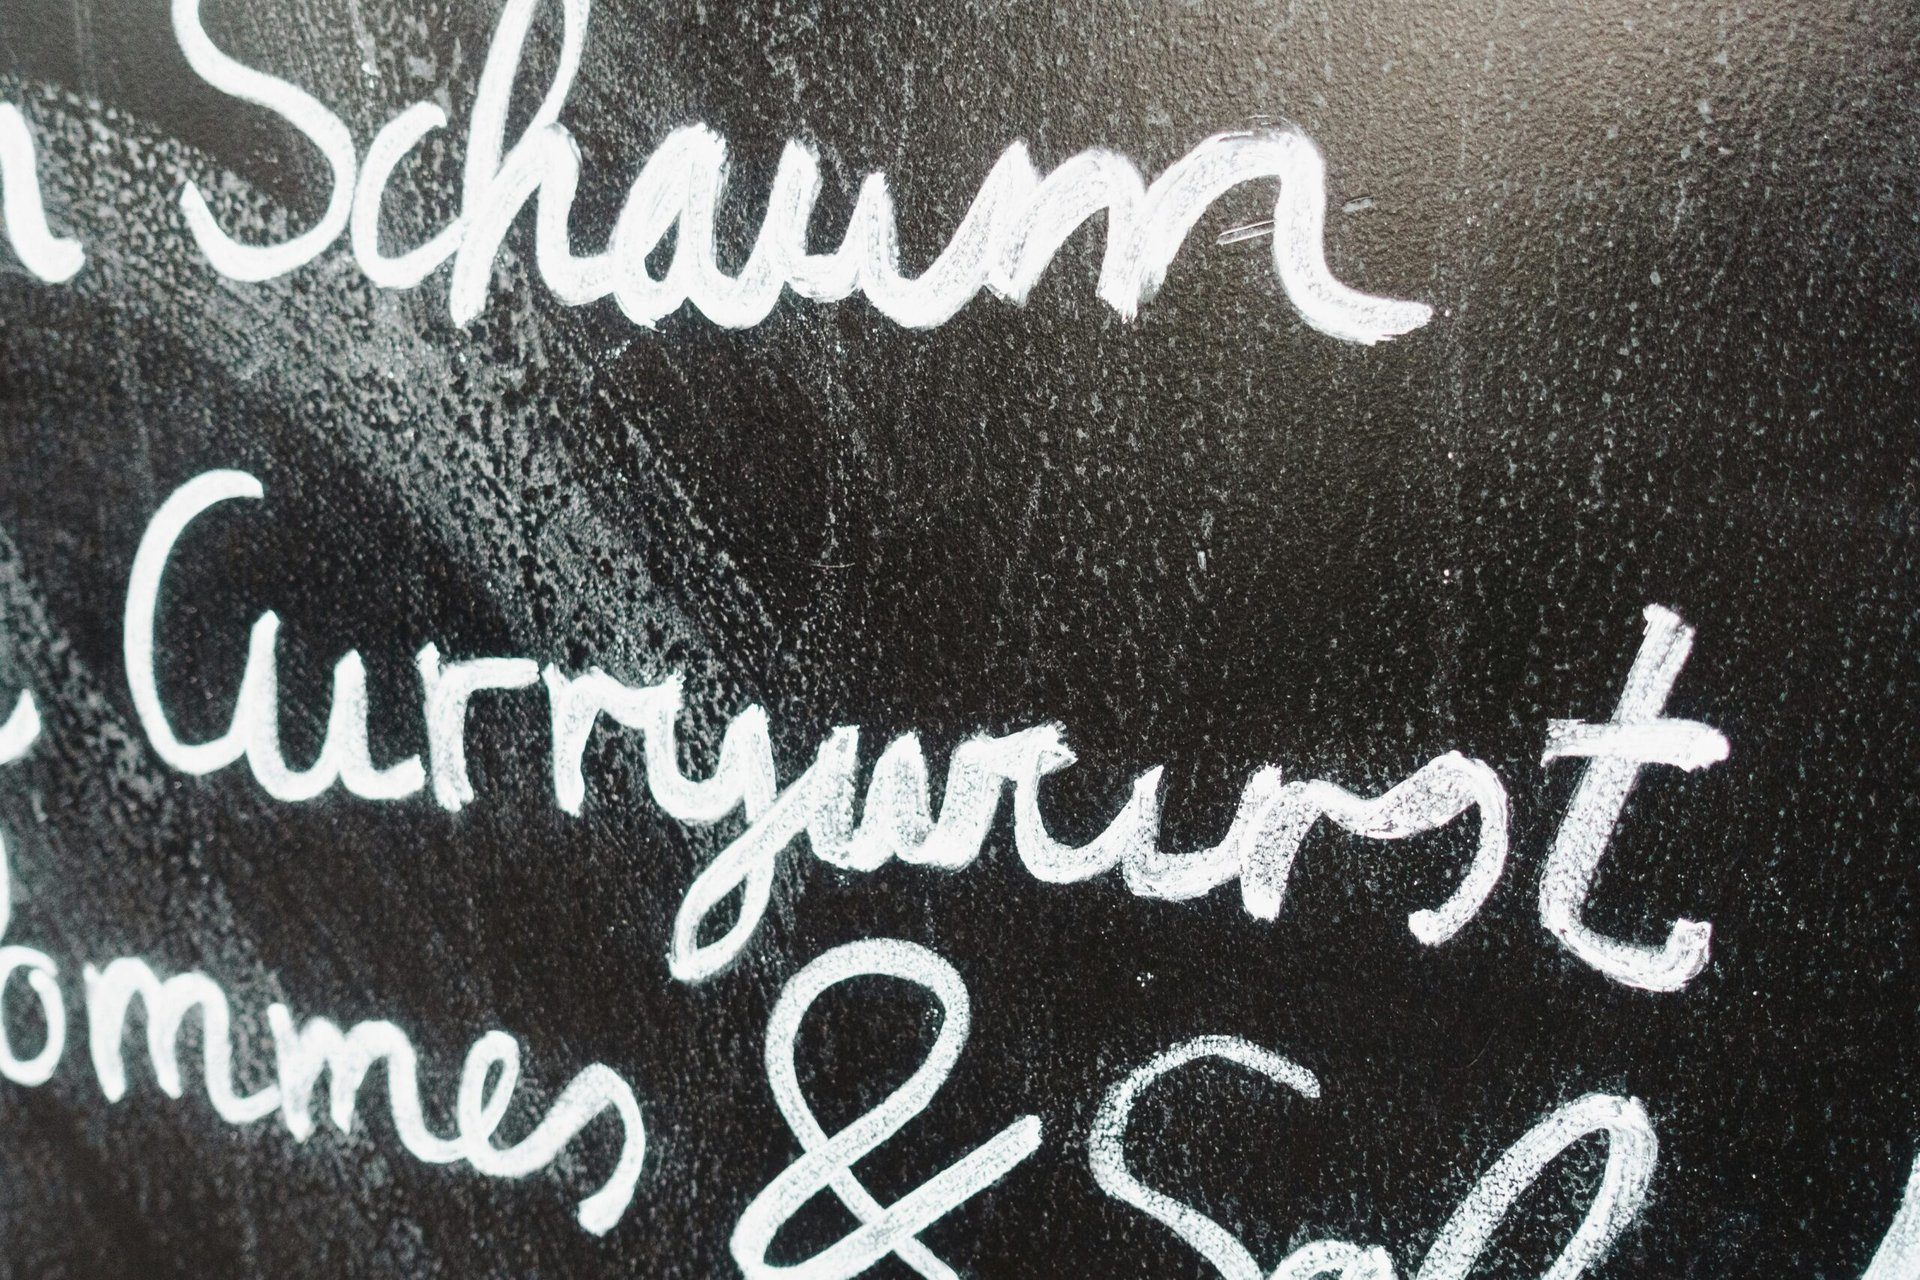 Schaum
Currywurst
ommes & Sal